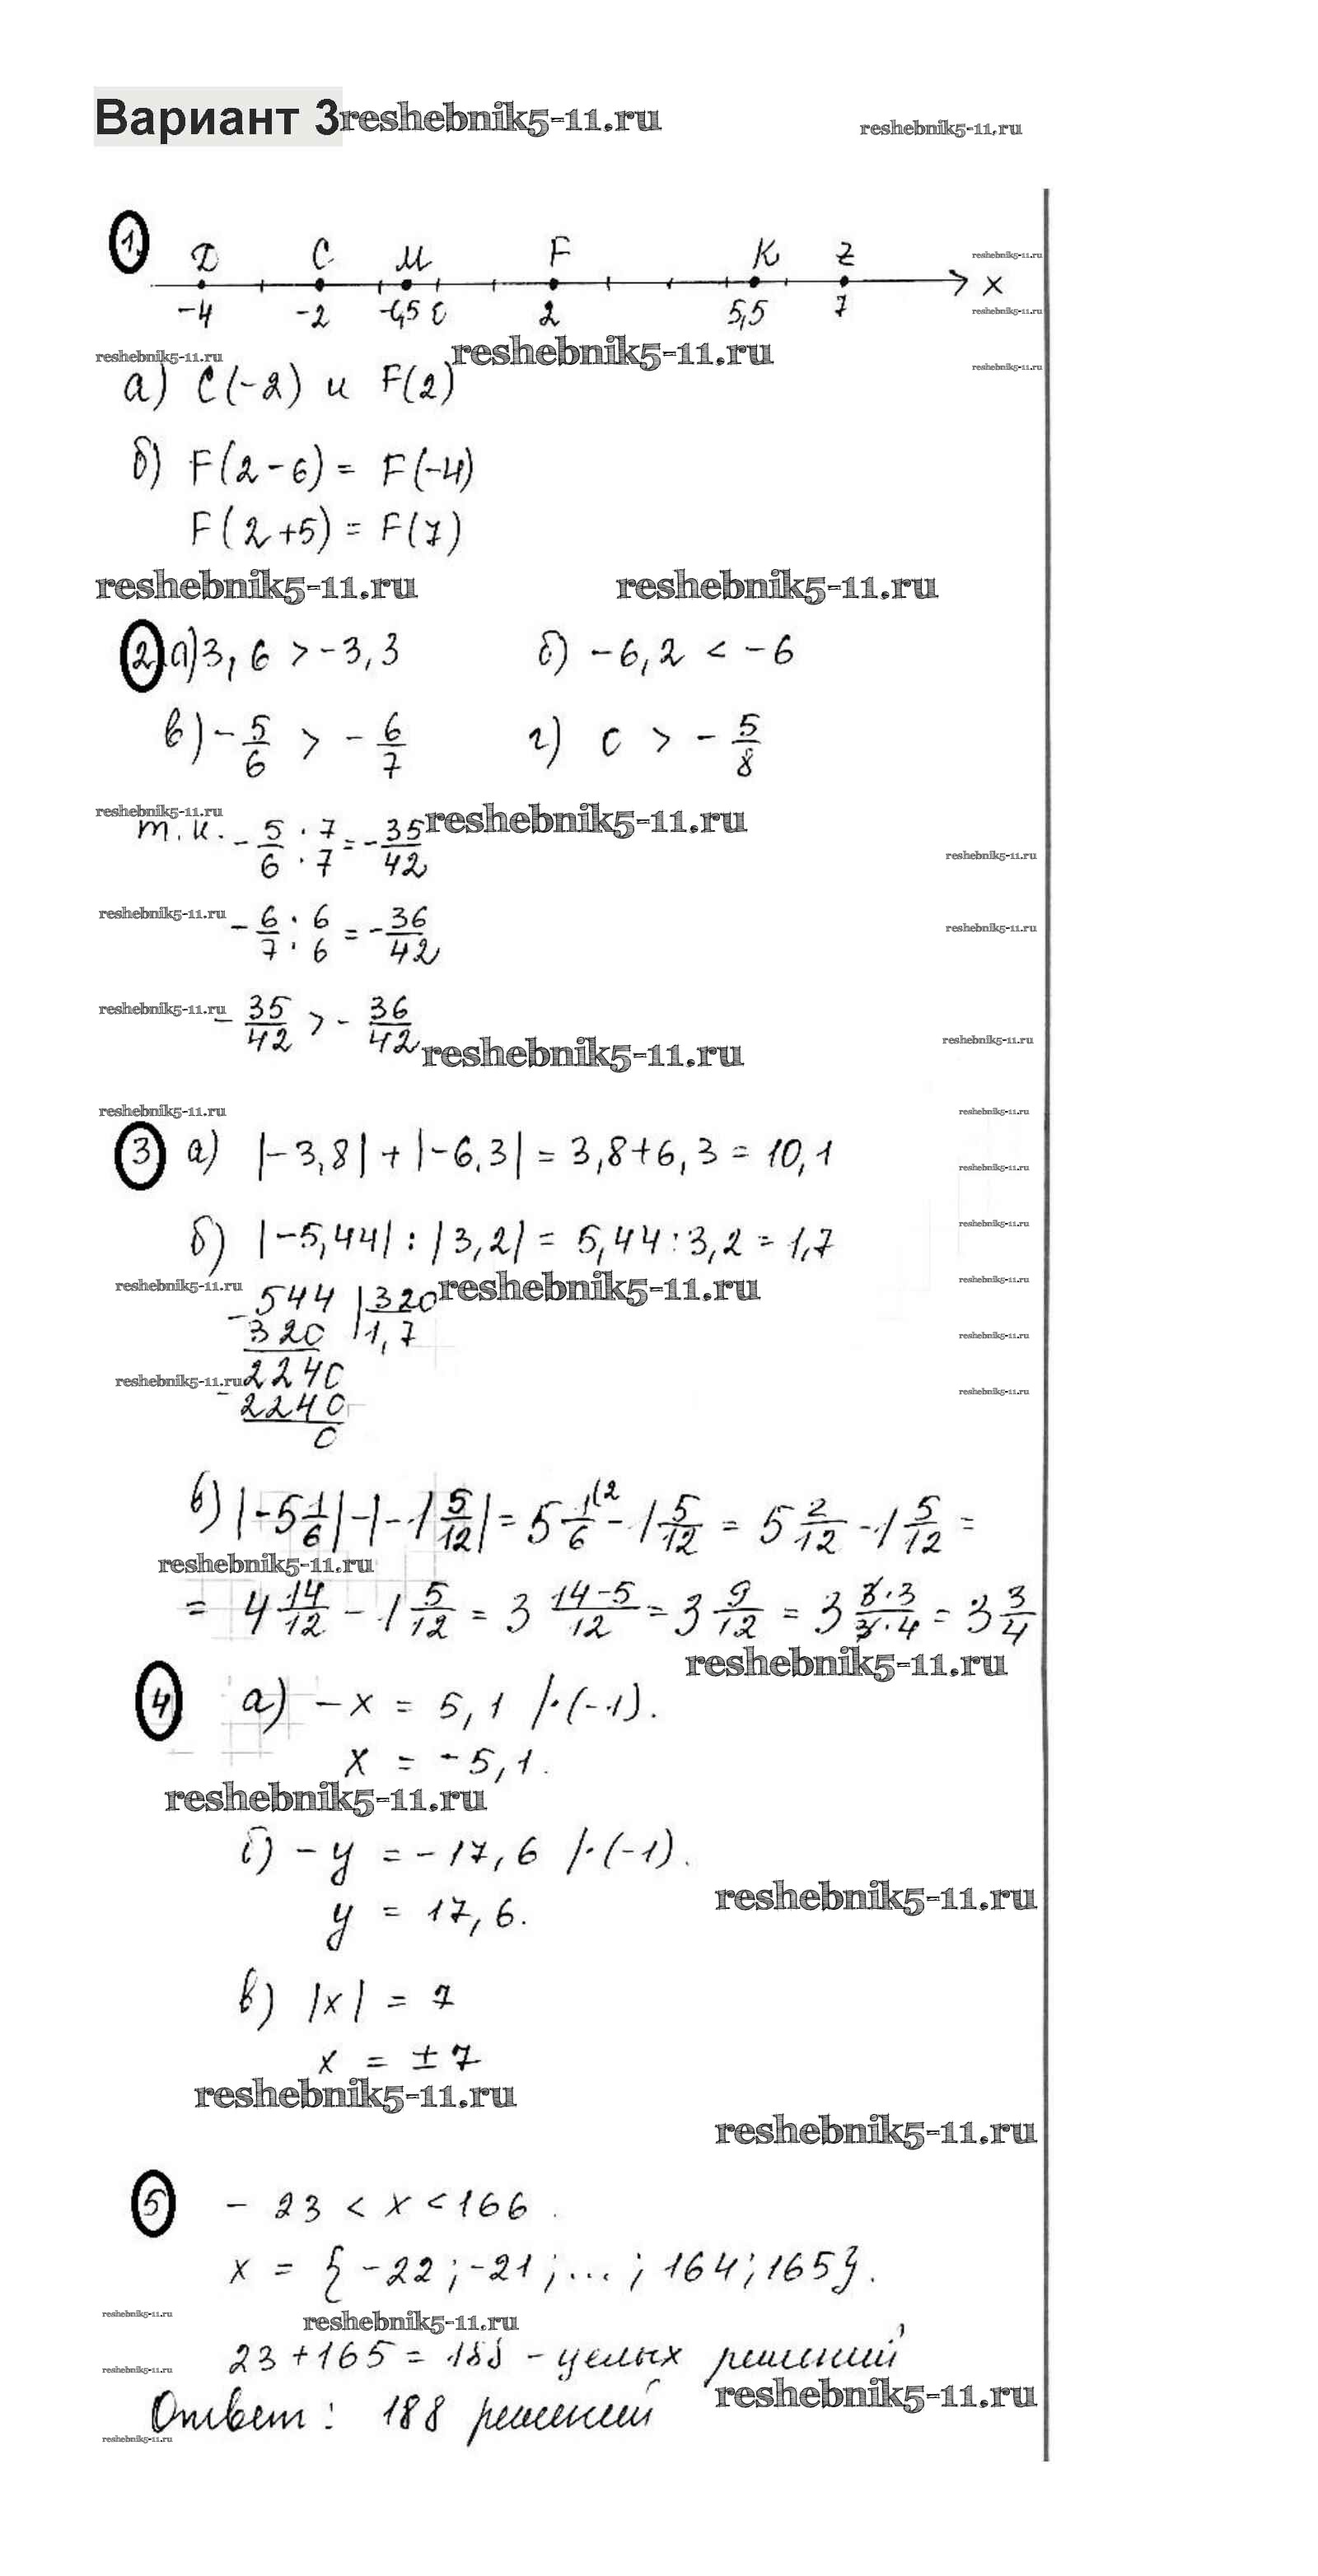 Вариант 3reshebnik5-11.ru
reshebnik5-11,ru
1.
D C M F K Z
reshebnik5-11.ru
x
-4 -2 -0,5 0 2 5,5 7
reshebnik5-11.ru
reshebnik5-11.ru reshebnik5-11.ru
reshebnik5-11.ru
а) C(-2) и F(2)
б) F(2-6) = F(-4)
F(2+5) = F(7)
reshebnik5-11.ru reshebnik5-11.ru
2. а) 3,6 > -3,3 б) -6,2 < -6
в) -5/6 > -6/7 г) 0 > -5/8
reshebnik5-11.ru reshebnik5-11.ru
т.к. -5/6 · 7/7 = -35/42
reshebnik5-11.ru
reshebnik5-11.ru -6/7 · 6/6 = -36/42
reshebnik5-11.ru
reshebnik5-11.ru -35/42 > -36/42
reshebnik5-11.ru reshebnik5-11.ru
reshebnik5-11.ru reshebnik5-11.ru
3 а) |-3,8| + |-6,3| = 3,8+6,3 = 10,1
reshebnik5-11.ru
reshebnik5-11.ru
б) |-5,44| : |3,2| = 5,44:3,2 = 1,7
reshebnik5-11.ru reshebnik5-11.ru reshebnik5-11.ru
-544 |320
320 |1,7
reshebnik5-11.ru
reshebnik5-11.ru -2240
reshebnik5-11.ru
2240
0
в) |-5 1/6| - |-1 5/12| = 5 1/6 (2 - 1 5/12 = 5 2/12 - 1 5/12 =
reshebnik5-11.ru
= 4 14/12 - 1 5/12 = 3 14-5/12 = 3 9/12 = 3 3·3/3·4 = 3 3/4
reshebnik5-11.ru
4 а) -x = 5,1 /·(-1).
x = -5,1.
reshebnik5-11.ru
б) -y = -17,6 /·(-1).
reshebnik5-11.ru
y = 17,6.
в) |x| = 7
x = ±7
reshebnik5-11.ru
reshebnik5-11.ru
5 -23 < x < 166.
x = {-22; -21; ...; 164; 165}.
reshebnik5-11.ru reshebnik5-11.ru
23+165 = 188 - целых решений
reshebnik5-11.ru
reshebnik5-11.ru
Ответ: 188 решений
reshebnik5-11.ru